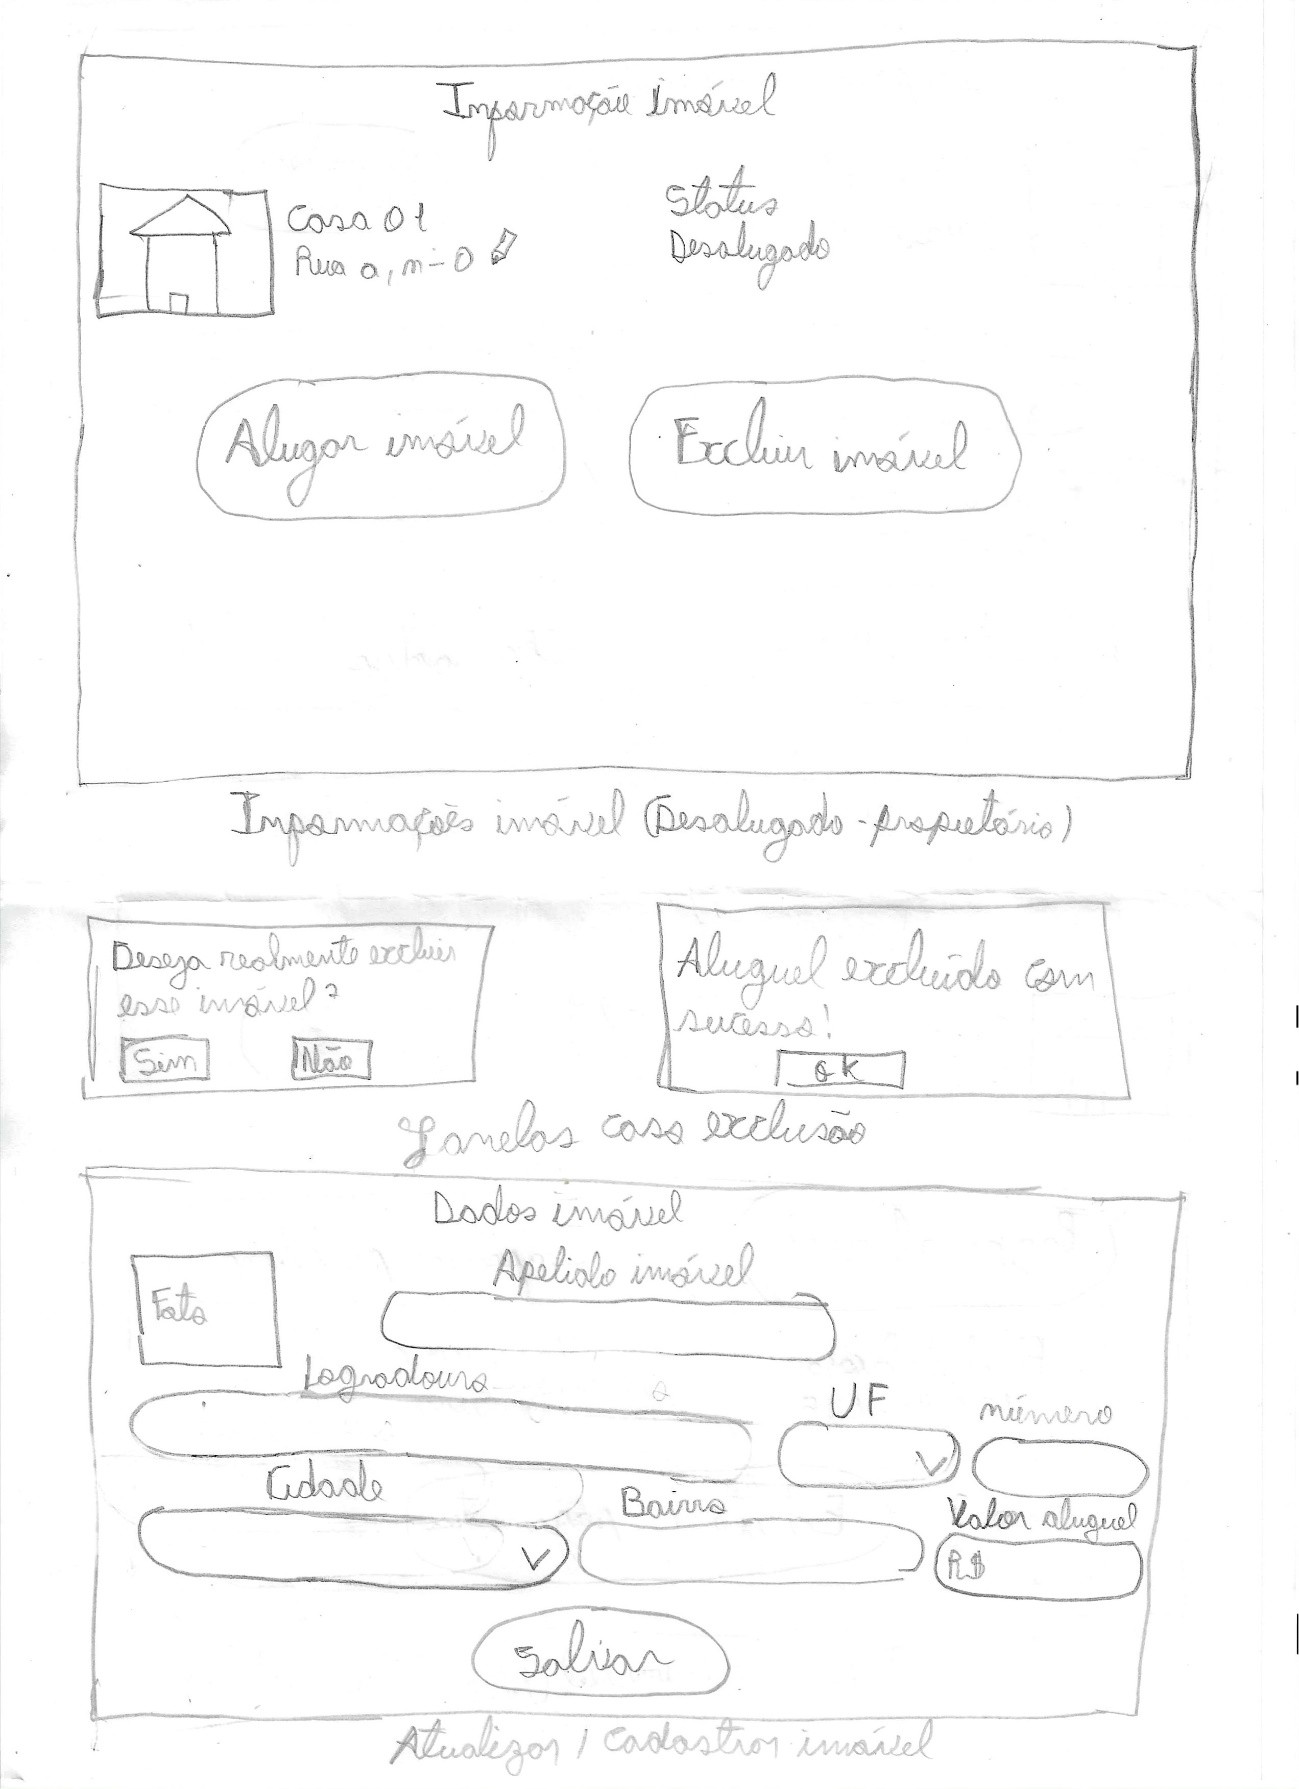 Informação imóvel
Casa 01
Rua a, n-0
Status
Desalugado
Alugar imóvel
Excluir imóvel
Informações imóvel (Desalugado - propietário)
Deseja realmente excluir
esse imóvel?
Sim
Não
Aluguel excluído com
sucesso!
OK
Janelas caso exclusão
Dados imóvel
Foto
Apelido imóvel
Logradouro
UF
número
Cidade
Bairro
Valor aluguel
R$
Salvar
Atualizar / Cadastrar imóvel